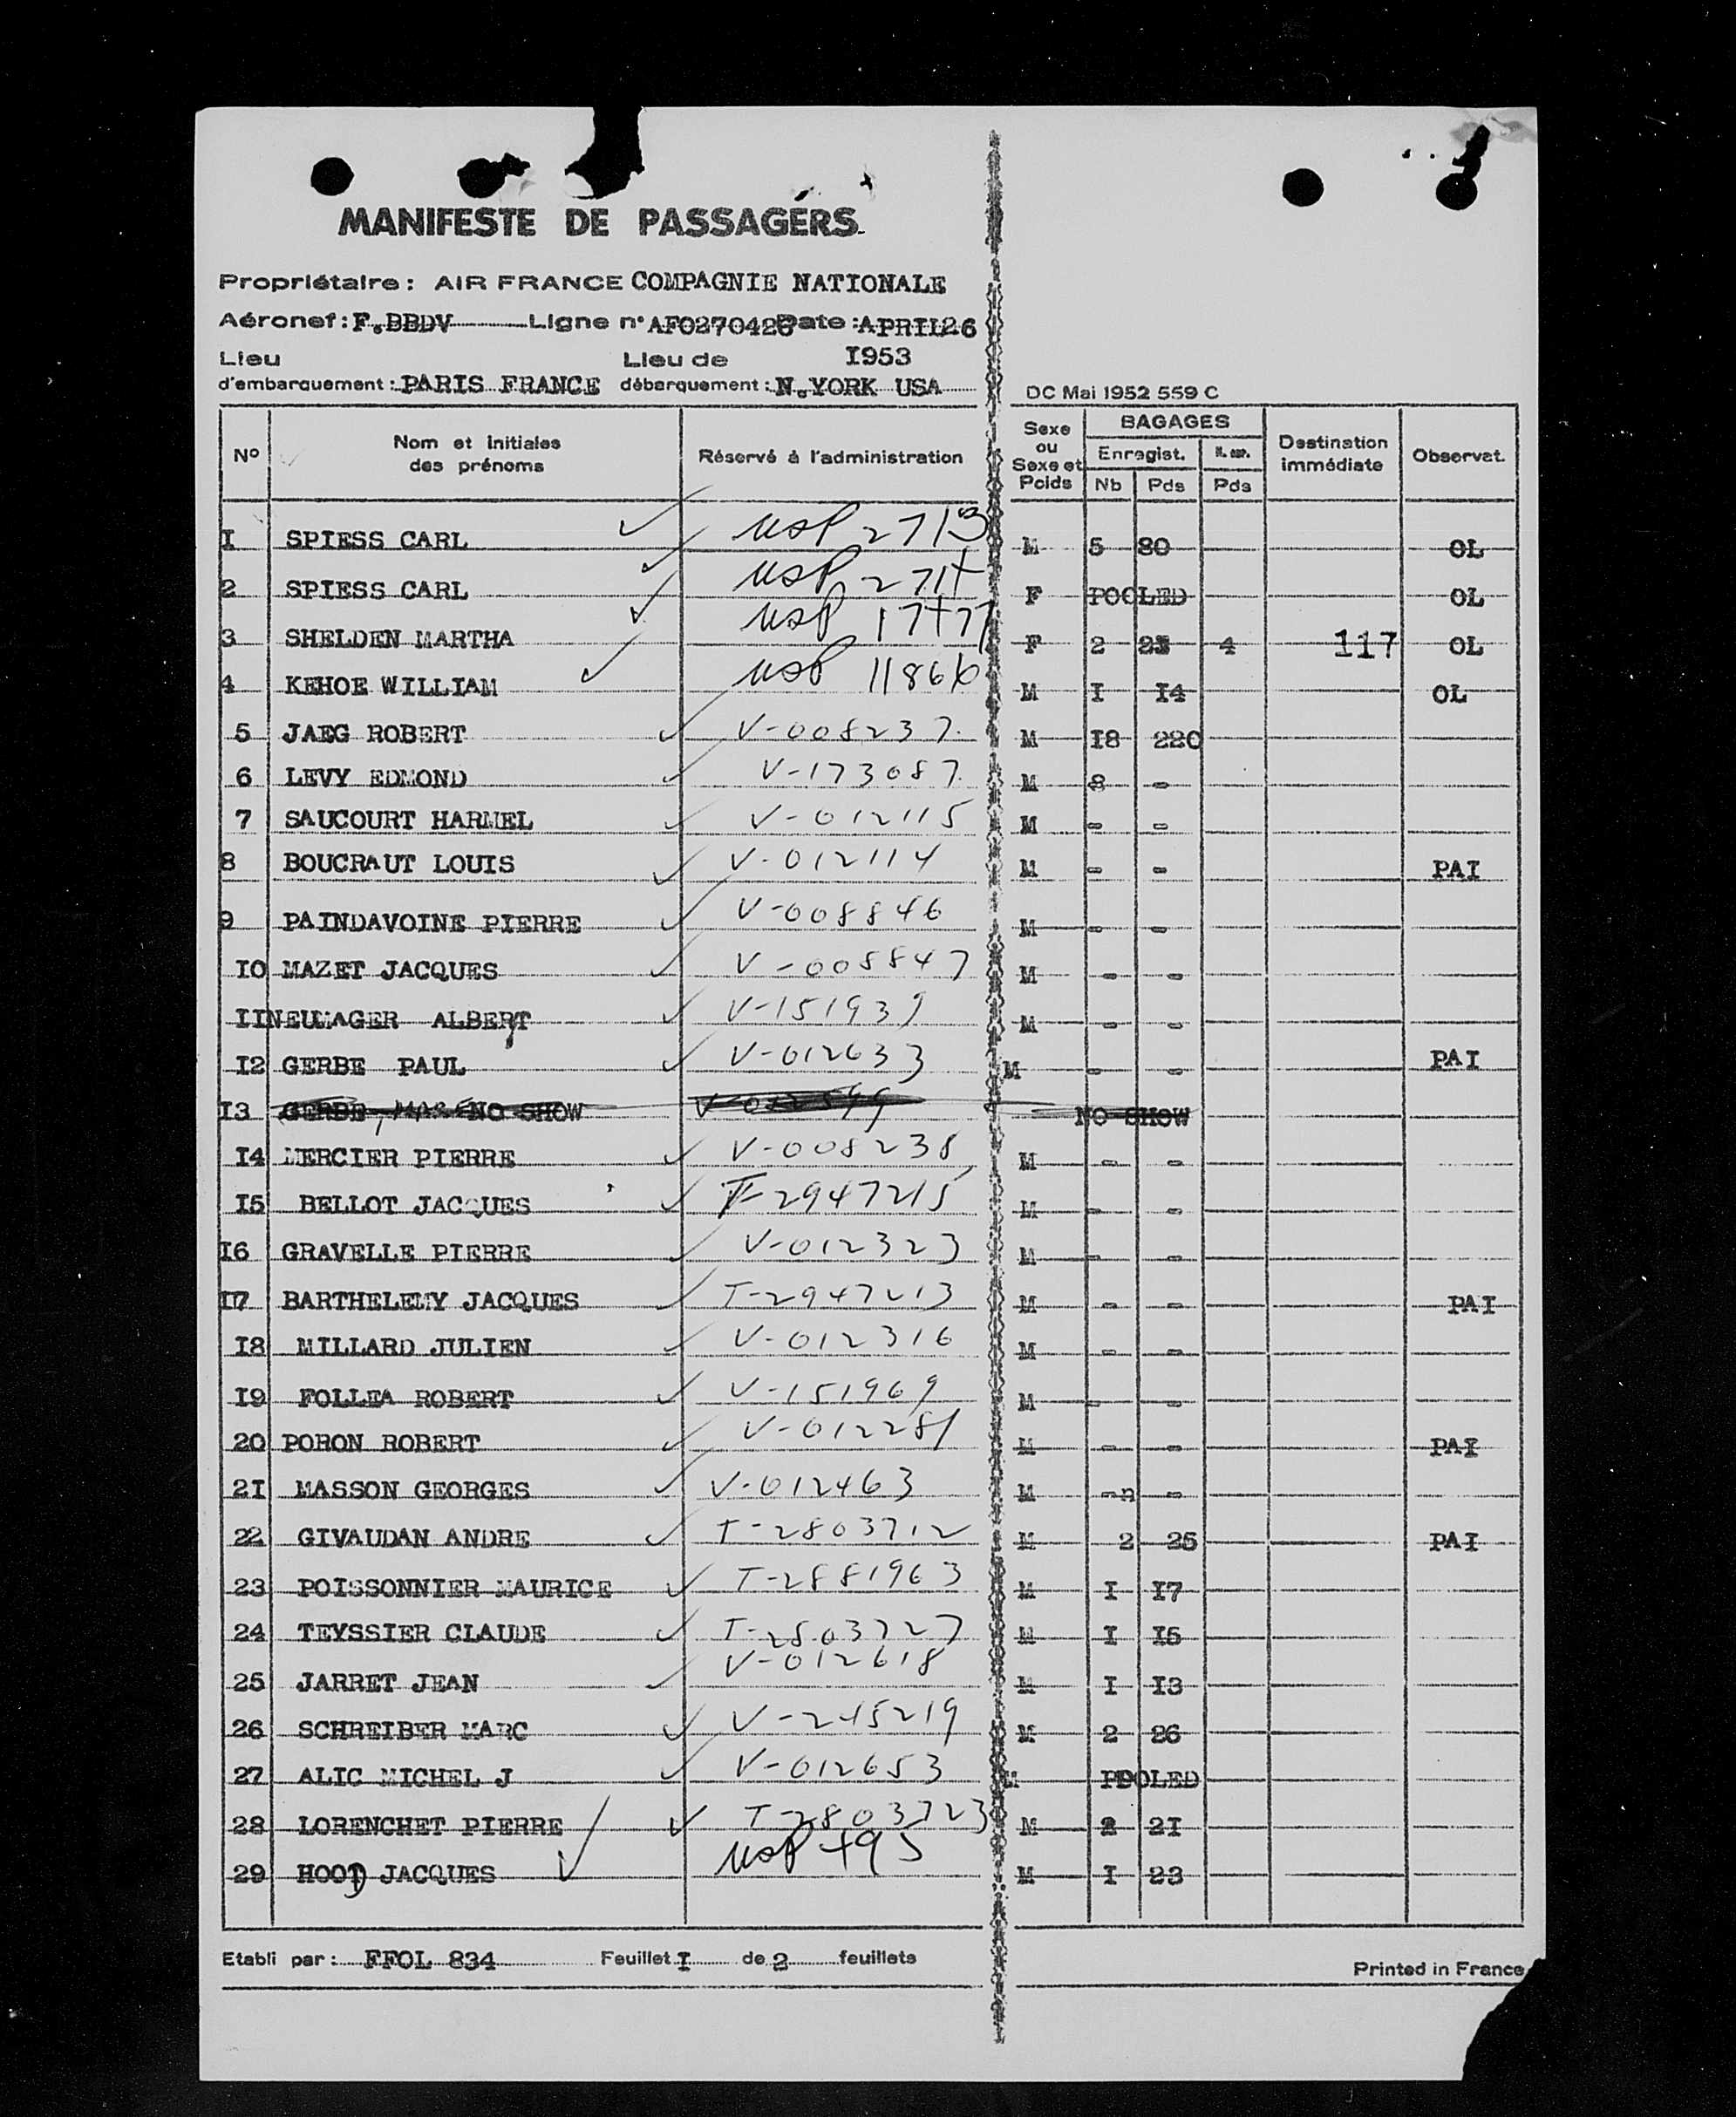 MANIFESTE DE PASSAGERS
Propriétaire: AIR FRANCE COMPAGNIE NATIONALE
Aéronef: F.BBDV Ligne n° AF0270426 Date: APRIL26
I953
Lieu d'embarquement: PARIS FRANCE Lieu de débarquement: N.YORK USA
DC Mai 1952 559 C
N° Nom et initiales des prénoms Réservé à l'administration Sexe ou Sexe et Poids BAGAGES Enregist. Nb Pds Pds Destination immédiate Observat.
I SPIESS CARL USP 2713 M 5 80 OL
2 SPIESS CARL USP F POOLED OL
3 SHELDEN MARTHA USP F 2 4 117 OL
4 KEHOE WILLIAM USP 11866 M I I4 OL
5 JAEG ROBERT V-008237 M I8 220
6 LEVY EDMOND V-173087 M 8 -
7 SAUCOURT HARMEL V-012115 M - -
8 BOUCRAUT LOUIS V-012114 M - - PAI
9 PAINDAVOINE PIERRE V-008846 M - -
I0 MAZET JACQUES V-008847 M - -
II NEUMAGER ALBERT V-151939 M - -
I2 GERBE PAUL V-012633 M - - PAI
I3 GERBE, NO SHOW NO SHOW
I4 MERCIER PIERRE V-008238 M - -
I5 BELLOT JACQUES T-2947215 M - -
I6 GRAVELLE PIERRE V-012323 M - -
I7 BARTHELEMY JACQUES T-2947213 M - - PAI
I8 MILLARD JULIEN V-012316 M - -
I9 FOLLEA ROBERT V-151969 M - -
20 PORON ROBERT V-012281 M - - PAI
2I MASSON GEORGES V-012463 M - -
22 GIVAUDAN ANDRE T-2803712 M 2 25 PAI
23 POISSONNIER MAURICE T-2881963 M I I7
24 TEYSSIER CLAUDE T-2803727 M I I5
25 JARRET JEAN V-012618 M I I3
26 SCHREIBER MARC V-245219 M 2 26
27 ALIC MICHEL J V-012653 M POOLED
28 LORENCHET PIERRE T-2803723 M 2 2I
29 HOOD JACQUES USP 495 M I 23
Etabli par: FFOL 834 Feuillet I de 2 feuillets
Printed in France